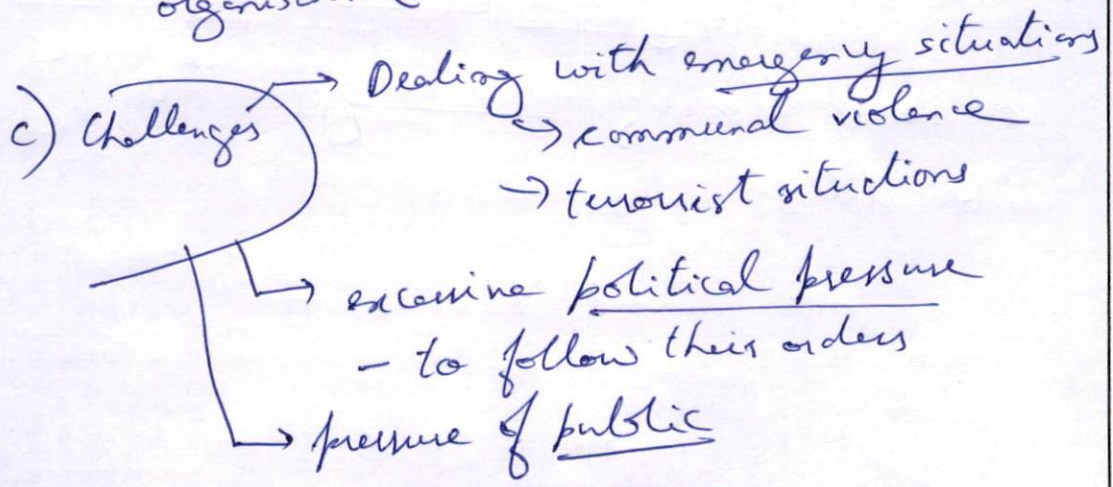 c) Challenges → Dealing with emergency situations
→ communal violence
→ terrorist situations
→ excessive political pressure
- to follow their orders
→ pressure of public